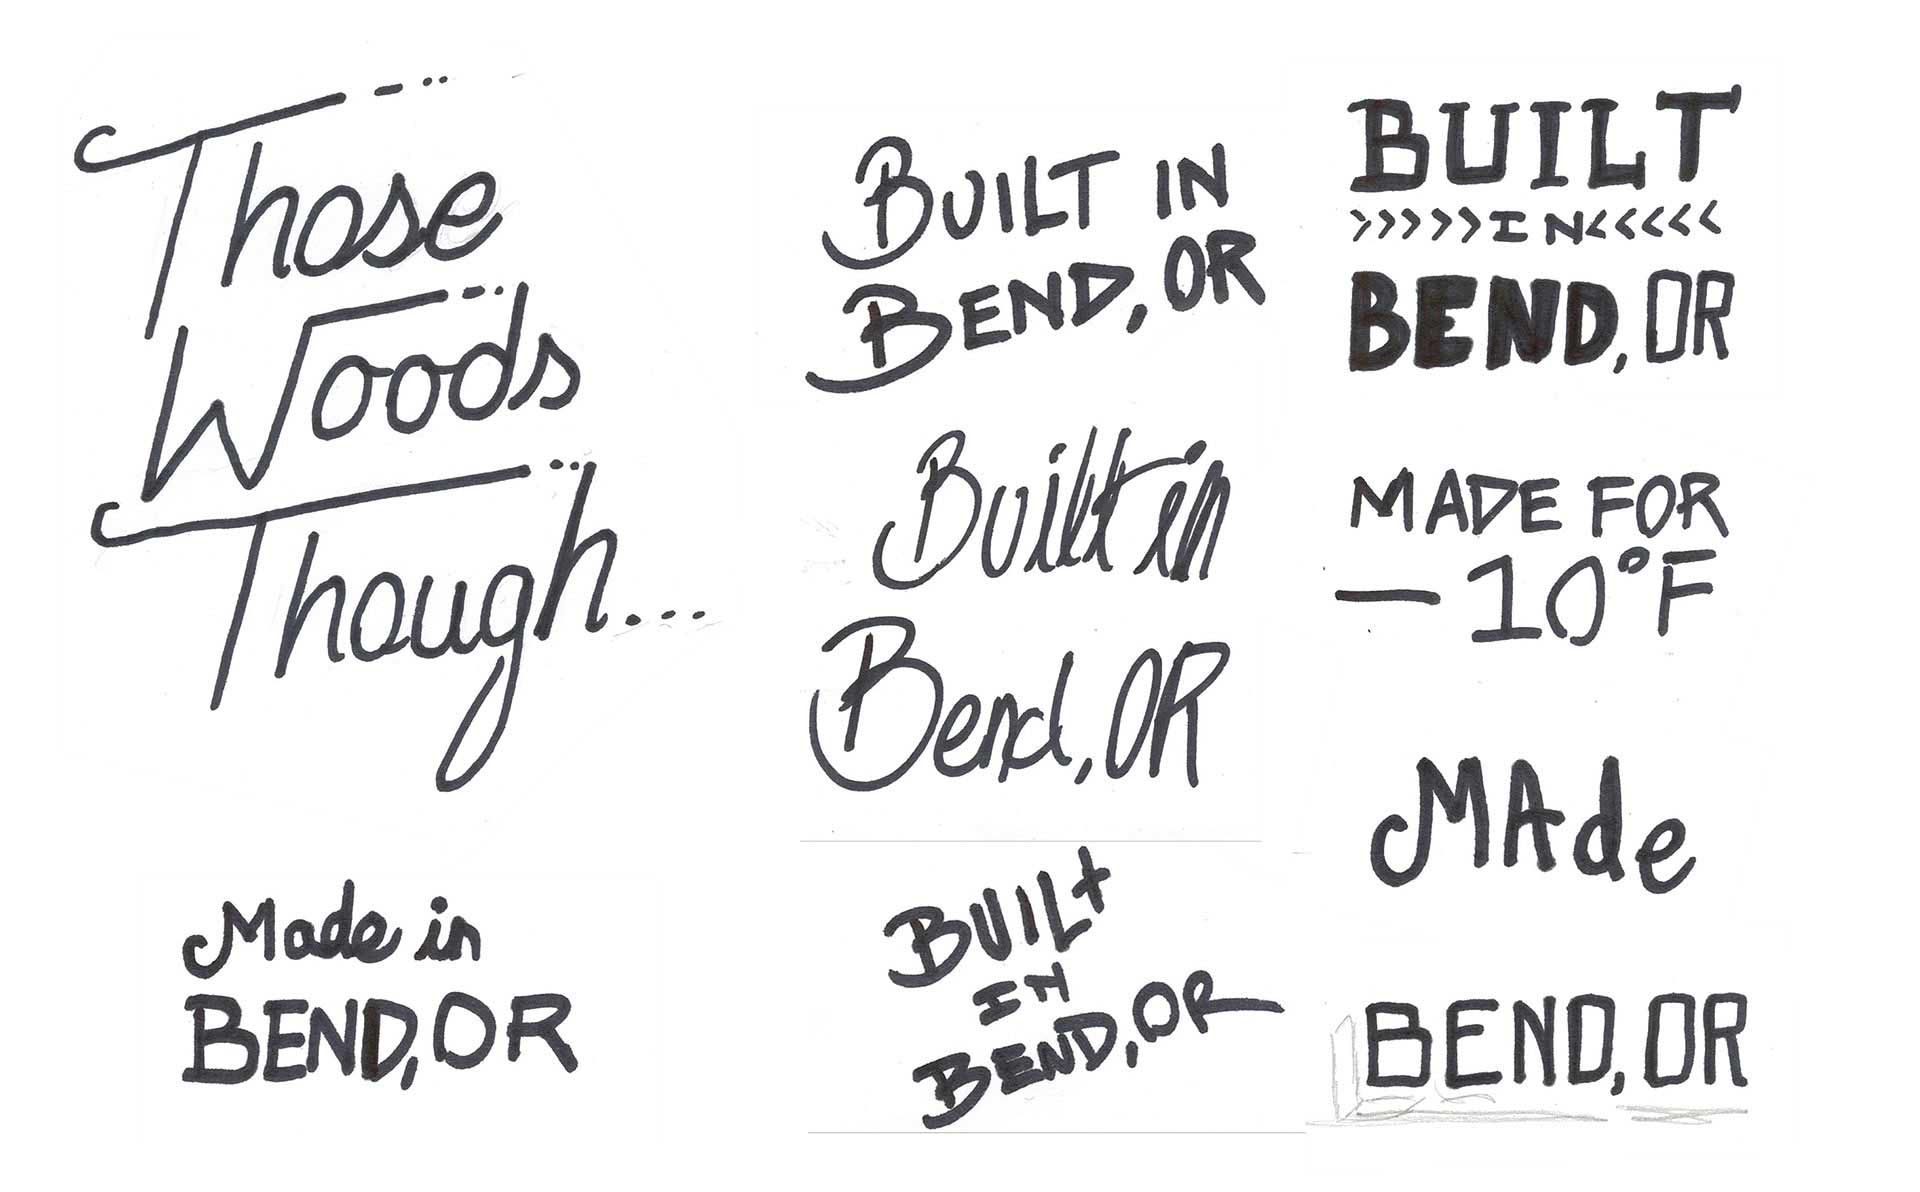 Those
Woods
Though...
Made in
BEND, OR
BUILT IN
BEND, OR
Built in
Bend, OR
BUILt
IN
BEND, OR
BUILT
>>>>>IN<<<<<
BEND, OR
MADE FOR
—10°F
MAde
BEND, OR